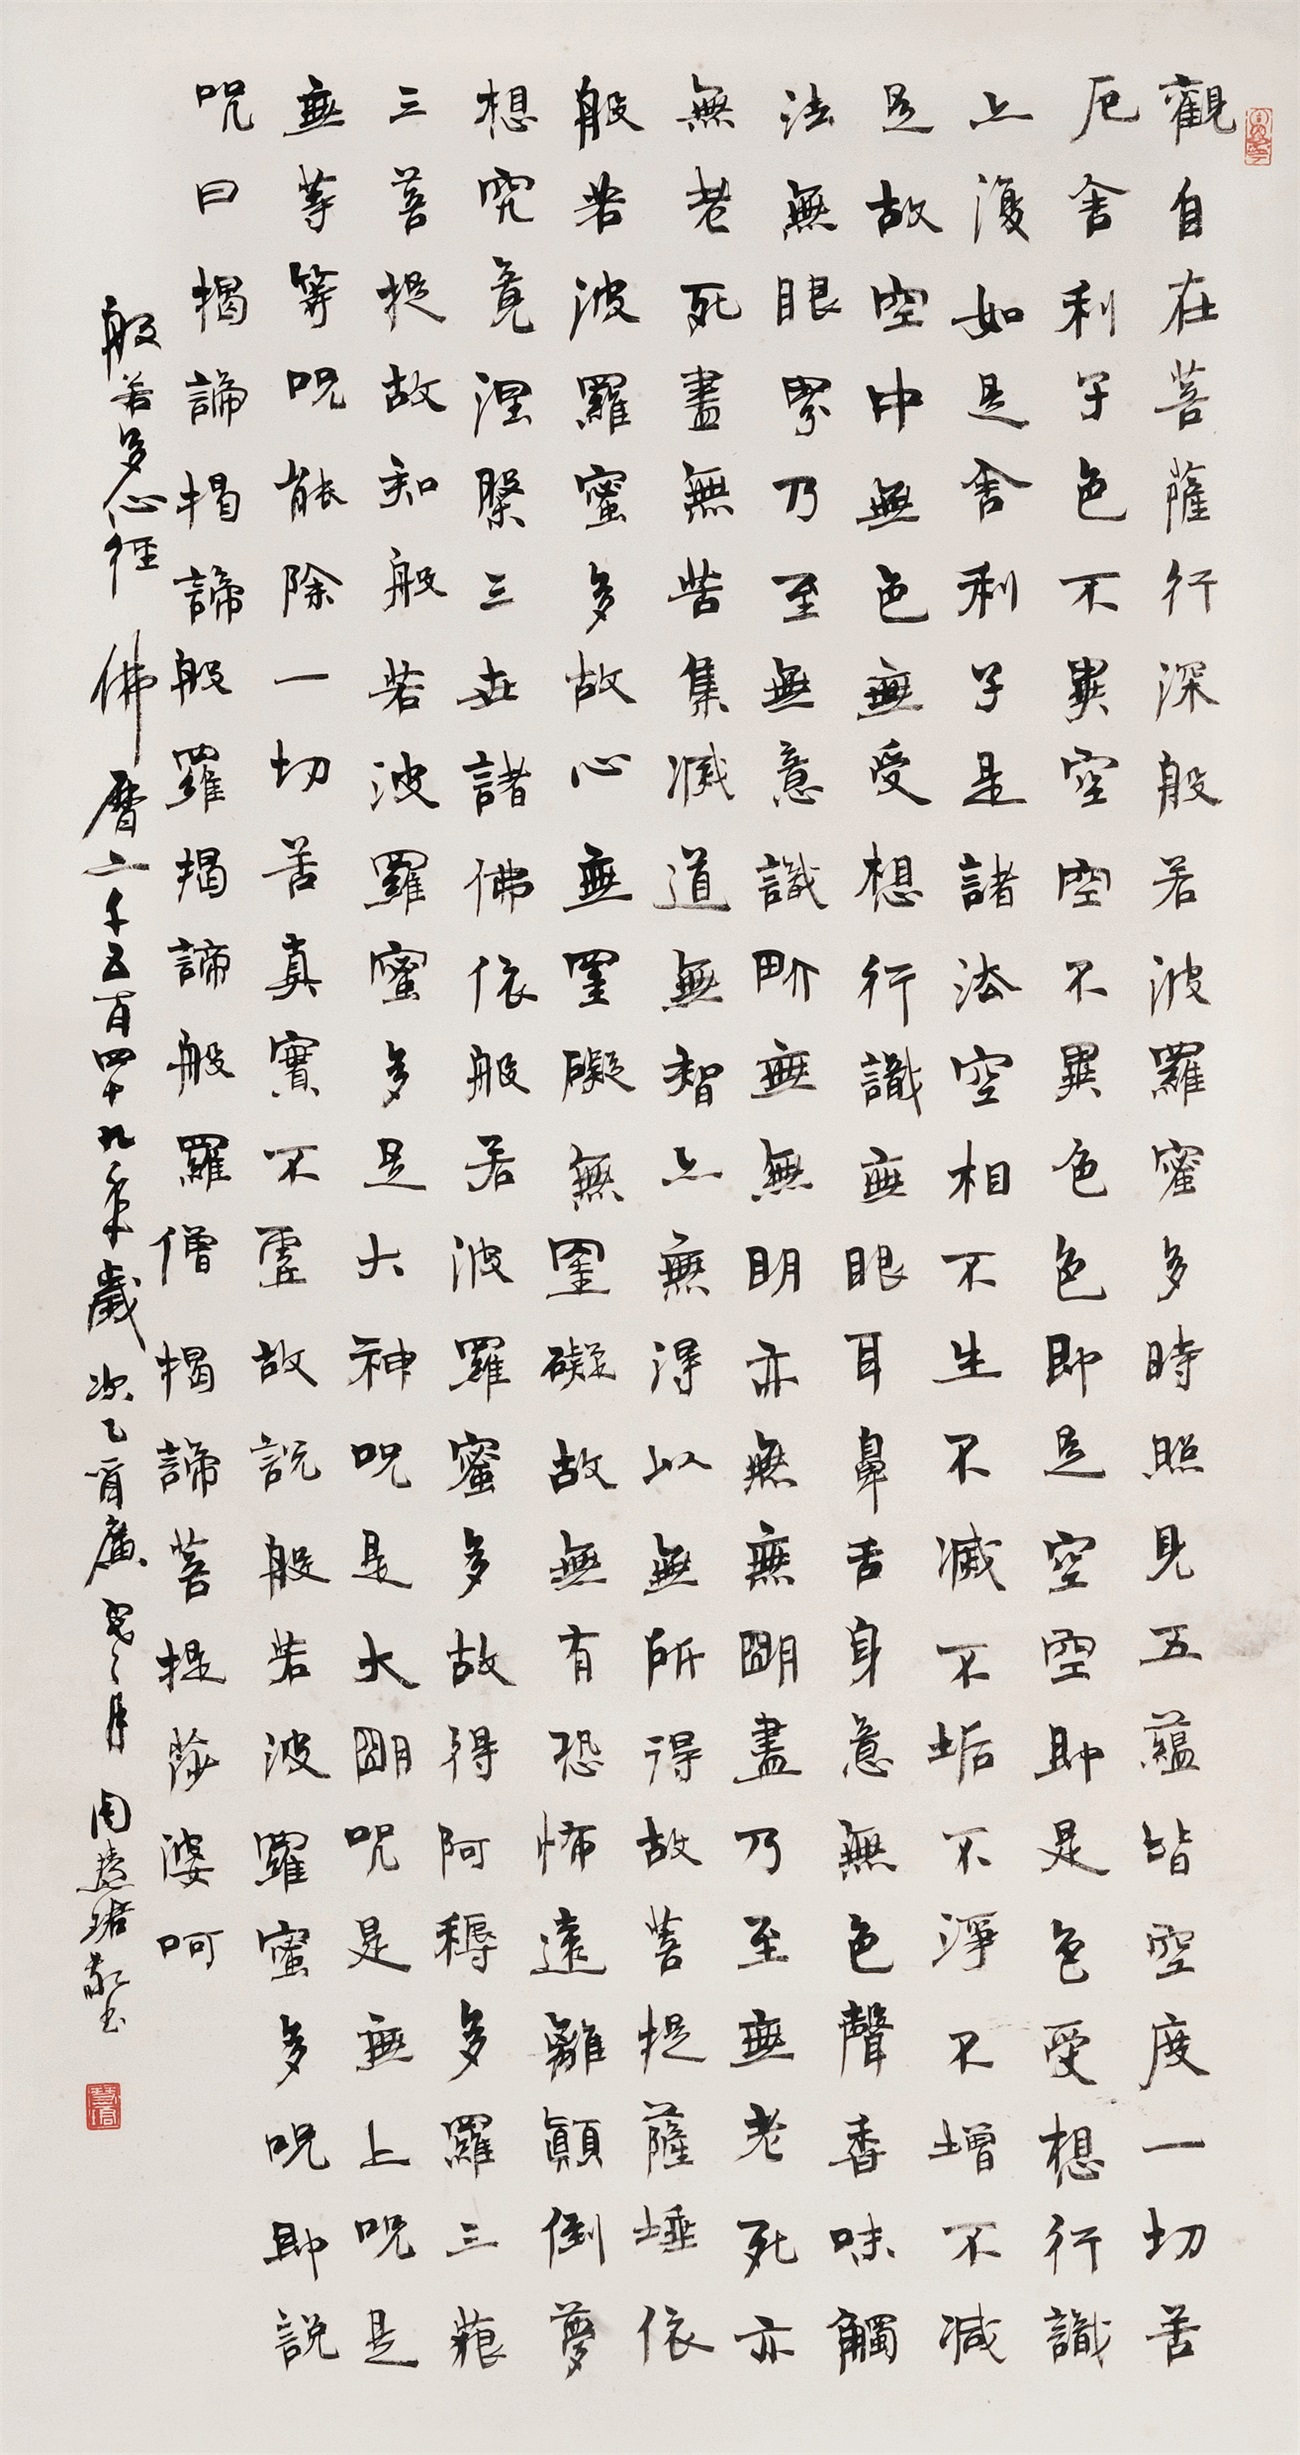 觀自在菩薩行深般若波羅蜜多時照見五蘊皆空度一切苦
厄舍利子色不異空空不異色色即是空空即是色受想行識
亦復如是舍利子是諸法空相不生不滅不垢不淨不增不減
是故空中無色無受想行識無眼耳鼻舌身意無色聲香味觸
法無眼界乃至無意識界無無明亦無無明盡乃至無老死亦
無老死盡無苦集滅道無智亦無得以無所得故菩提薩埵依
般若波羅蜜多故心無罣礙無罣礙故無有恐怖遠離顛倒夢
想究竟涅槃三世諸佛依般若波羅蜜多故得阿耨多羅三藐
三菩提故知般若波羅蜜多是大神咒是大明咒是無上咒是
無等等咒能除一切苦真實不虛故說般若波羅蜜多咒即說
咒曰揭諦揭諦般羅揭諦般羅僧揭諦菩提莎婆呵
般若多心經 佛曆二千五百四十九年歲次乙酉月 周慧珺敬書